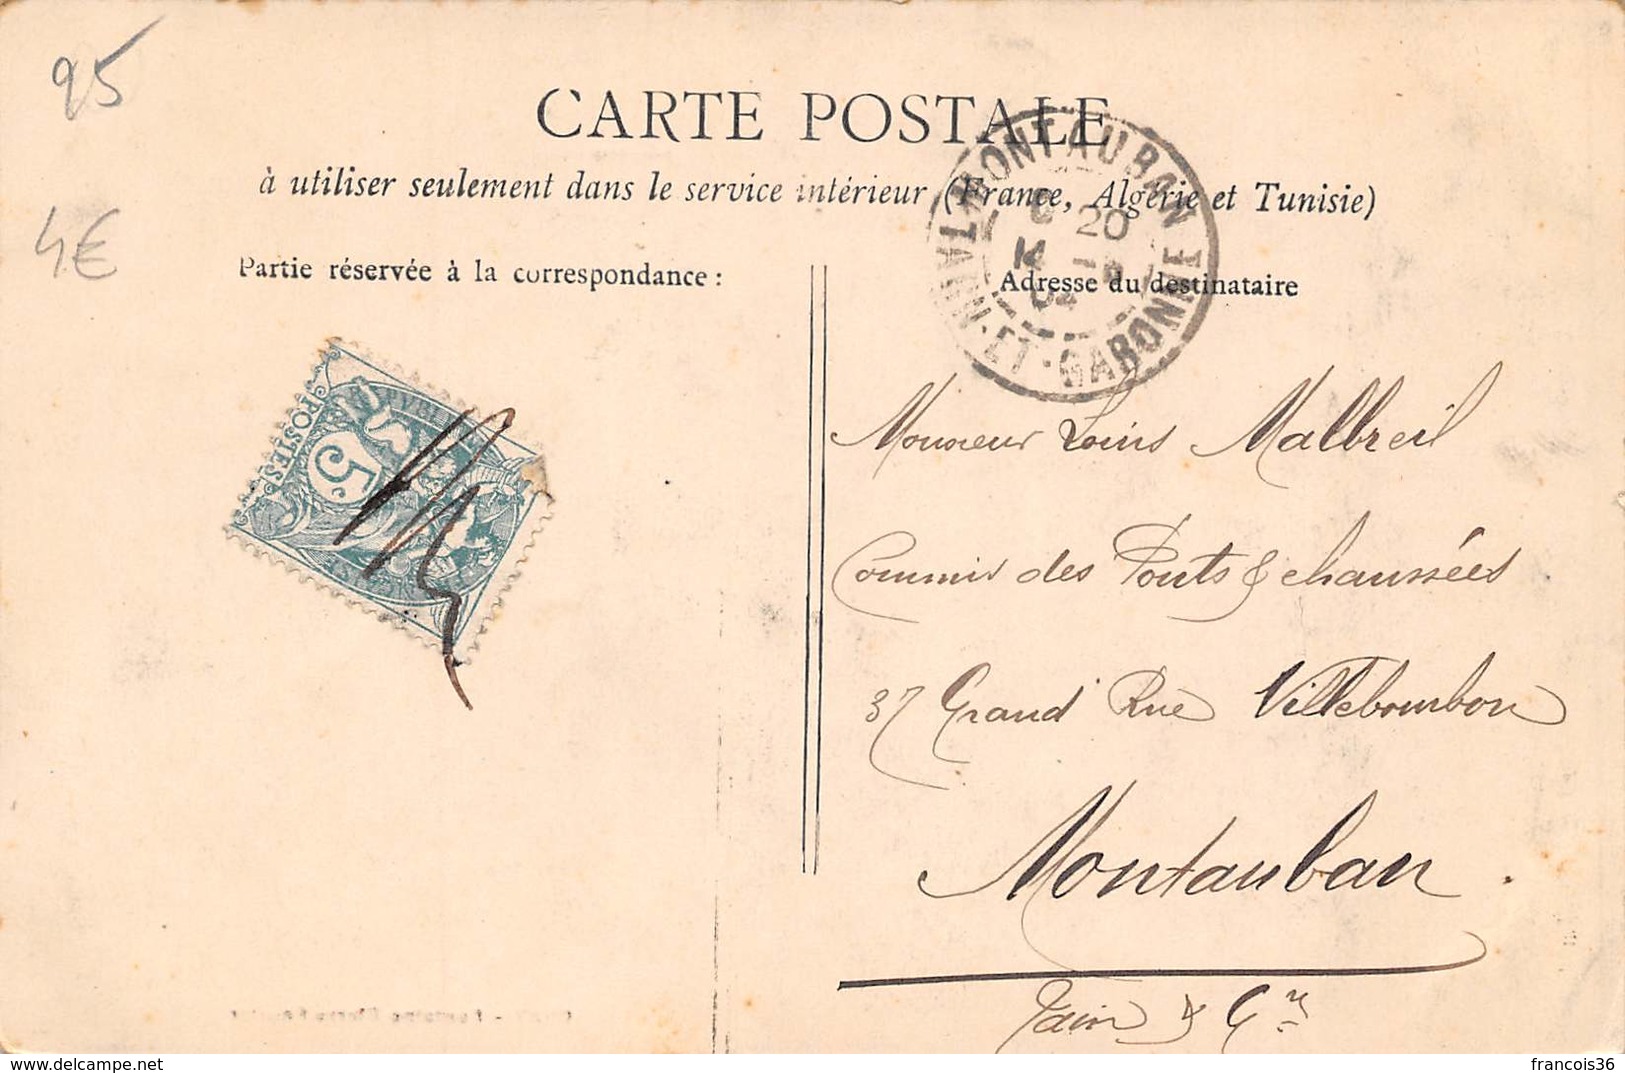 95
4€
CARTE POSTALE
à utiliser seulement dans le service intérieur (France, Algérie et Tunisie)
Partie réservée à la correspondance :
Adresse du destinataire
MONTAUBAN
20
14
TARN-ET-GARONNE
POSTES
5c
Monsieur Louis Malbreil
Commis des Ponts & chaussées
37 Grand Rue Villebourbon
Montauban.
Tarn & Gne
www.delcampe.net
francois36